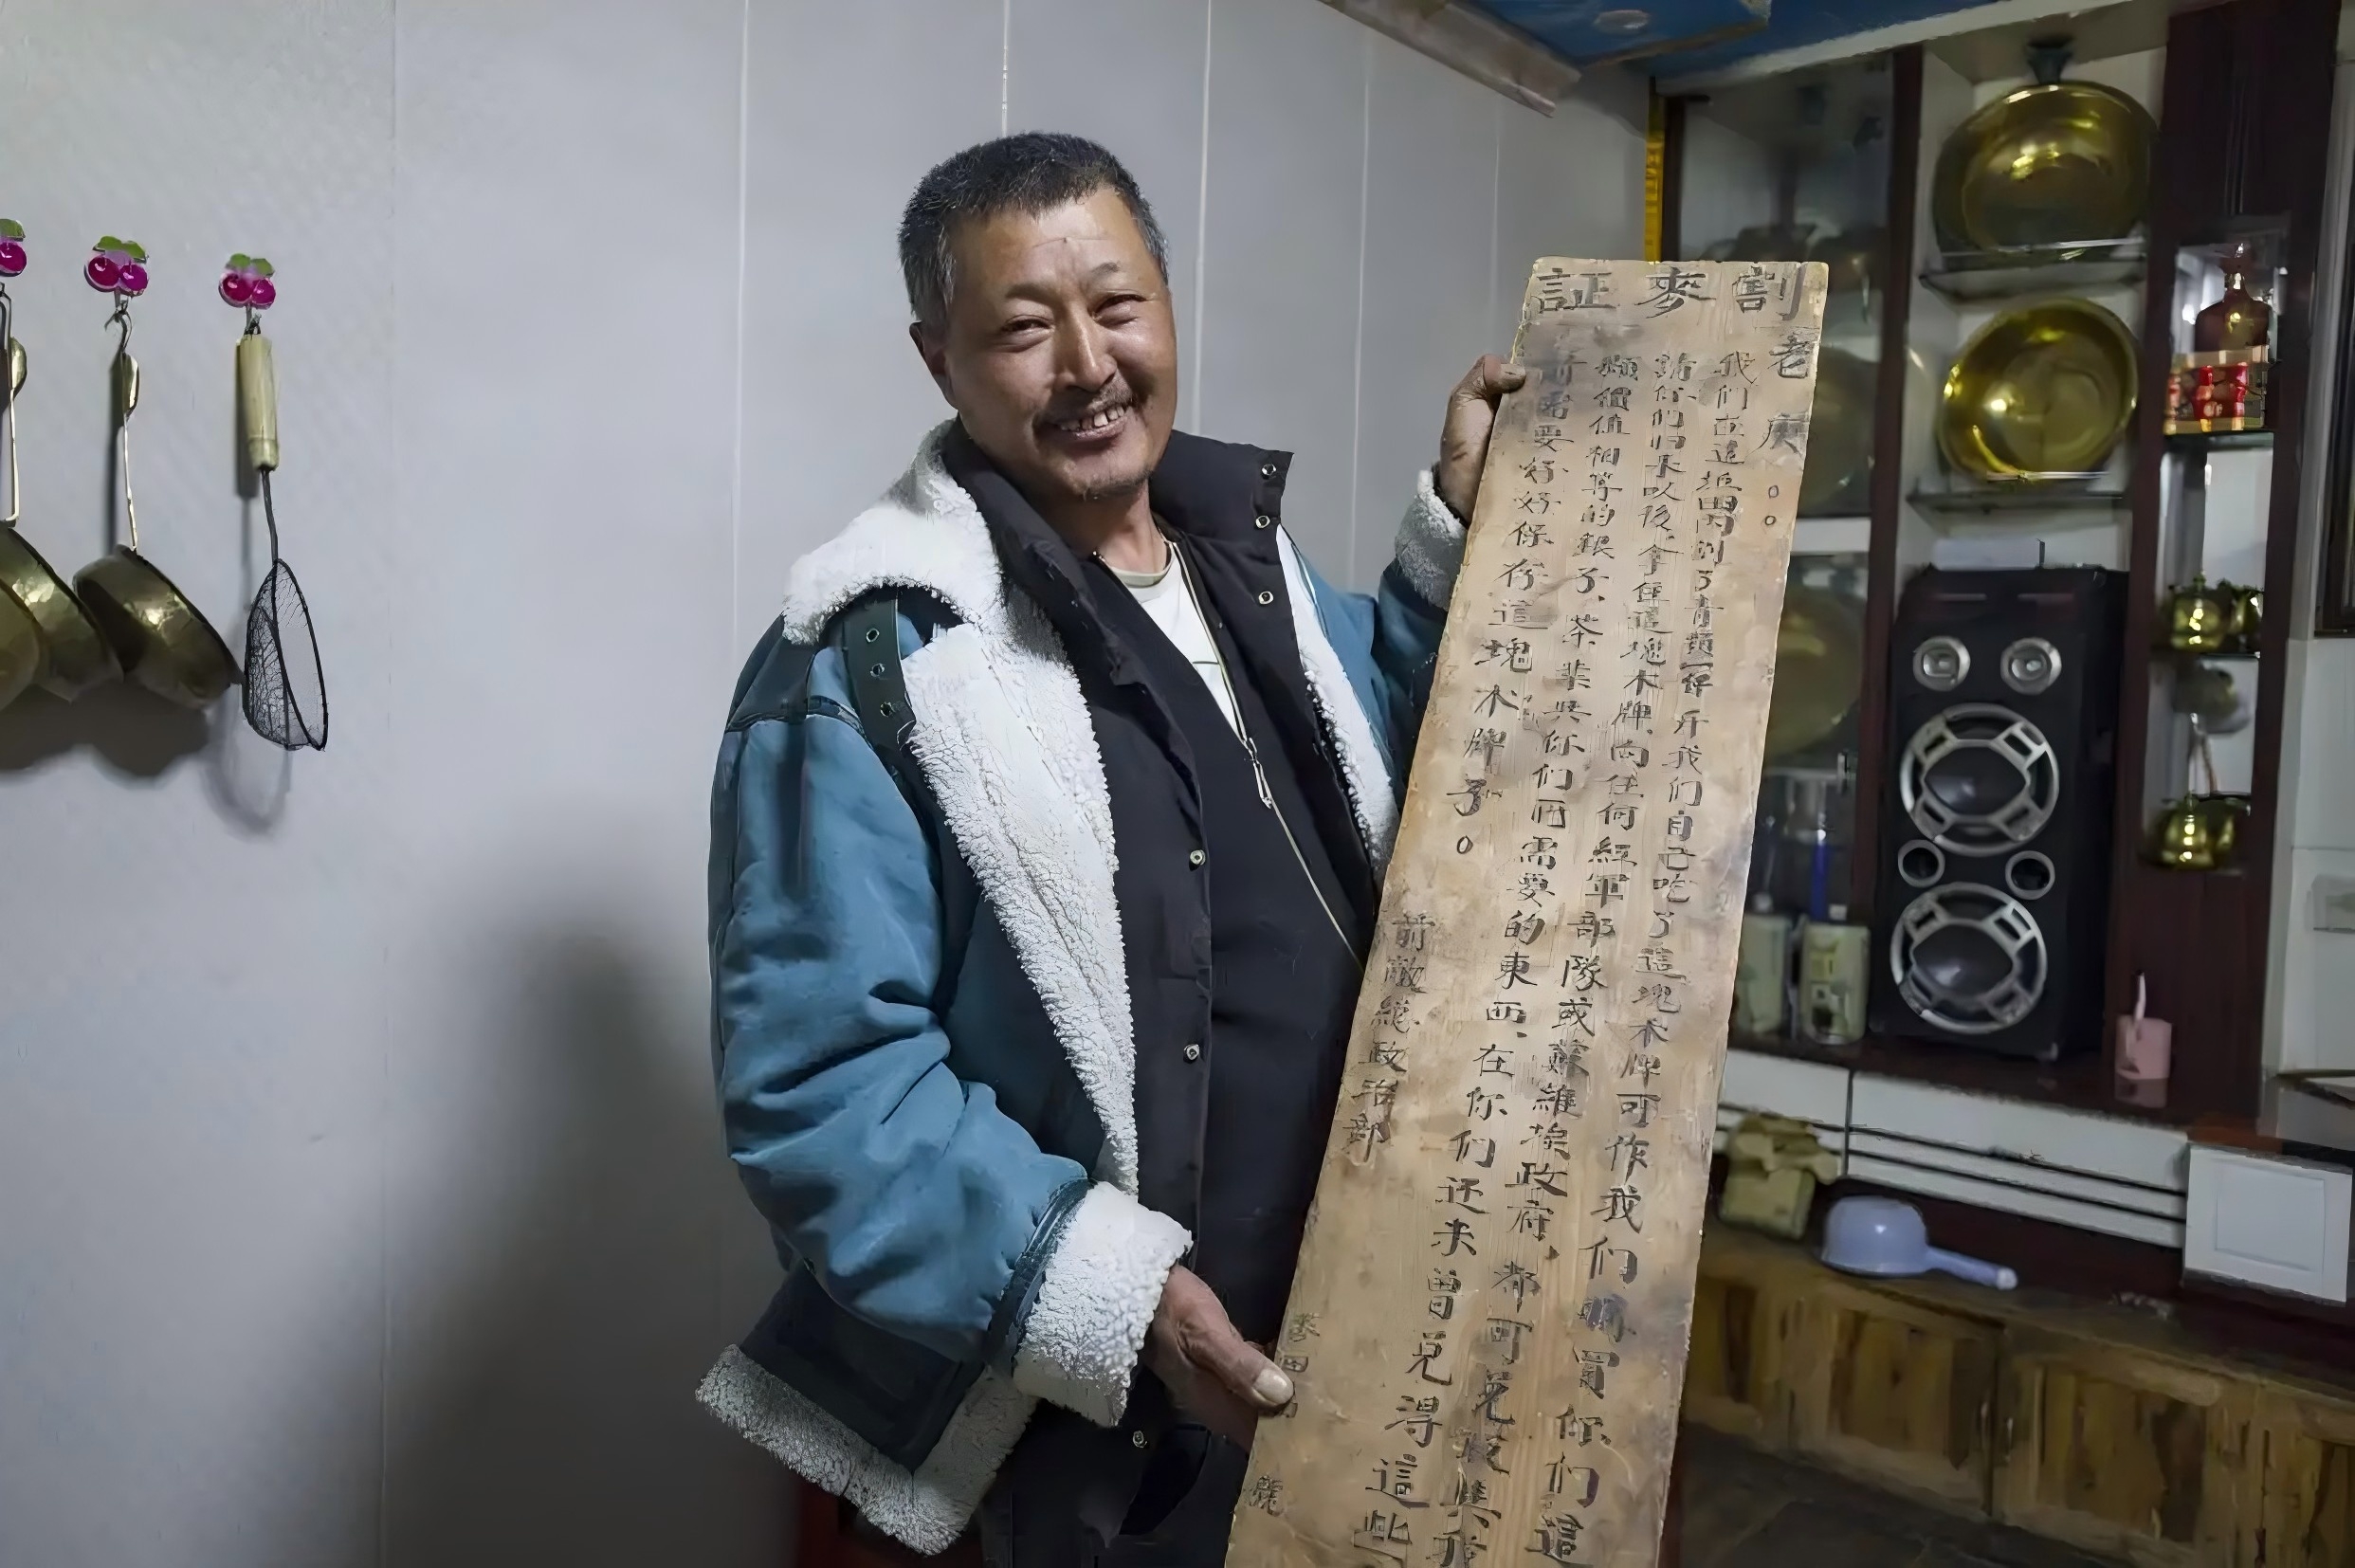 割麥証
老庚。。
我们在這塊田割了青斤我们自己吃了這塊木牌可作我们購買你们這
你们归来以後、拿住這塊木牌向任何紅軍部隊或蘇維埃政府，都可兑取與
價值相等的銀子、茶葉與你们所需要的東西、在你们还未曾兑得這些
前需要好好保存這塊木牌子。
前敵總政治部
號